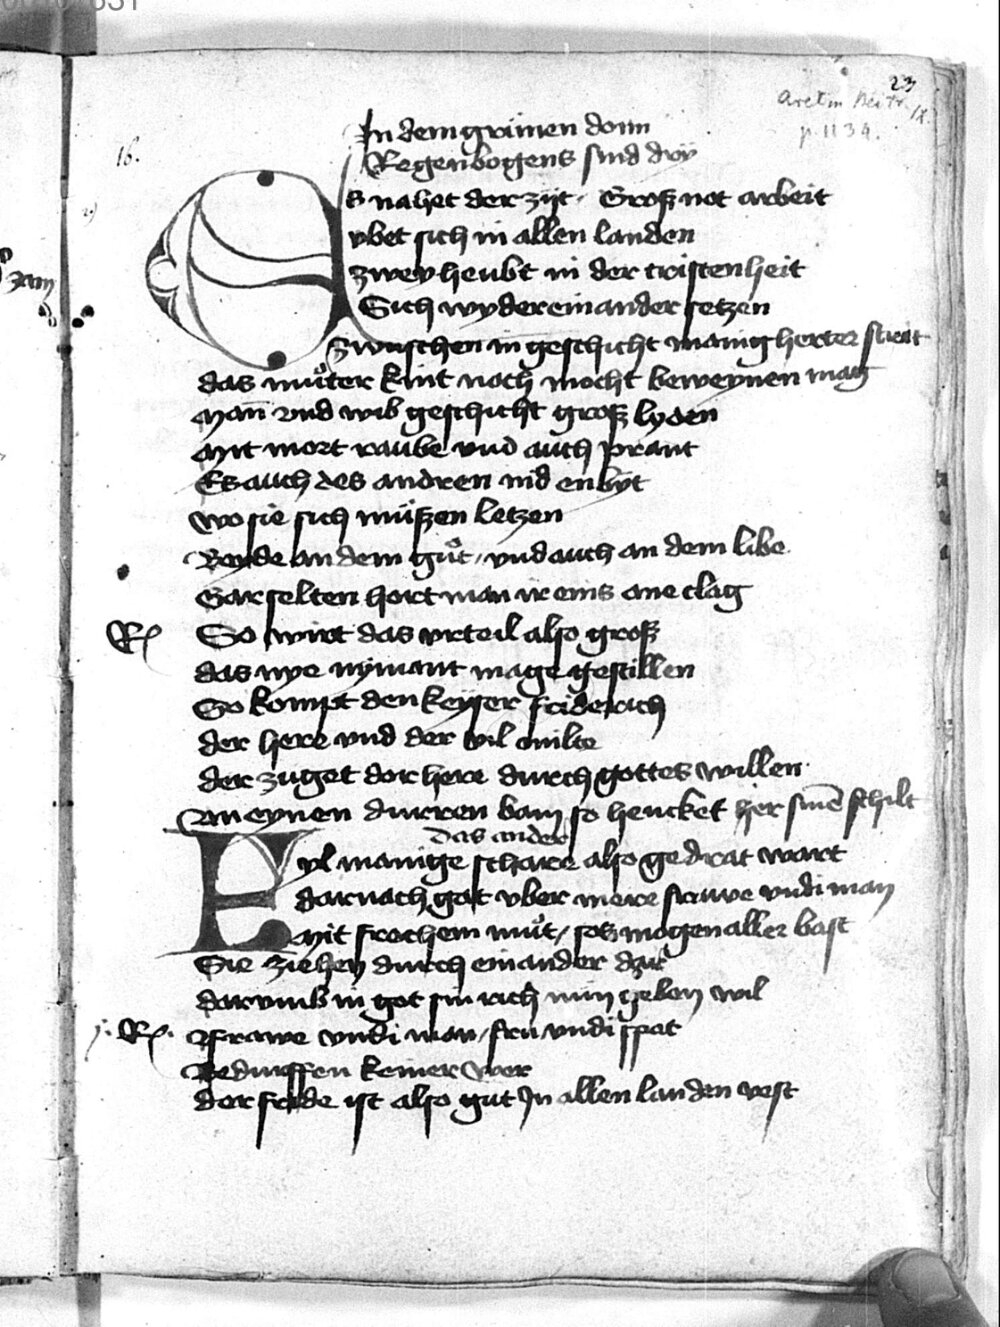 23
Aretin Beitr. IX.
p. 1134.
16.
In dem grimen donn
Regenbogens sind drÿ
Es nahet der zijt / Groß not arbeit
vbet sich in allen landen
zwey heubt in der cristenheit
Sich wydereinander setzen
Zwuschen in geschicht manig herter strit
das mu̍ter kint noch mocht beweynen mag
Man̄ vnd wib geschicht groß lyden
Mit mort raube vnd auch prant
Es auch des andren nid enbÿt
wo sie sich müßen letzen
Beyde an dem gůt / vnd auch an dem libe
Gar selten hort man ir eins ane clag
R So wirt das vrteil also groß
das nye nÿmant mage gestillen
So kompt den keÿser friderich
der here vnd der vil milte
der zuget dorhere durch gottes willen
An eynen durren bam so hencket her sinē schilt
das ander
Vyl manige schare also gedrat wart
darnach gat vber mere frawe vndi man
Mit frochem můt / sos mogen aller bast
Sie ziehen durch einander dar
darumb in got sin rich nun geben wil
R Frawe vndi man / fru vndi spat
Bedurffen keiner wer
der fride ist also gut In allen landen vest
zam